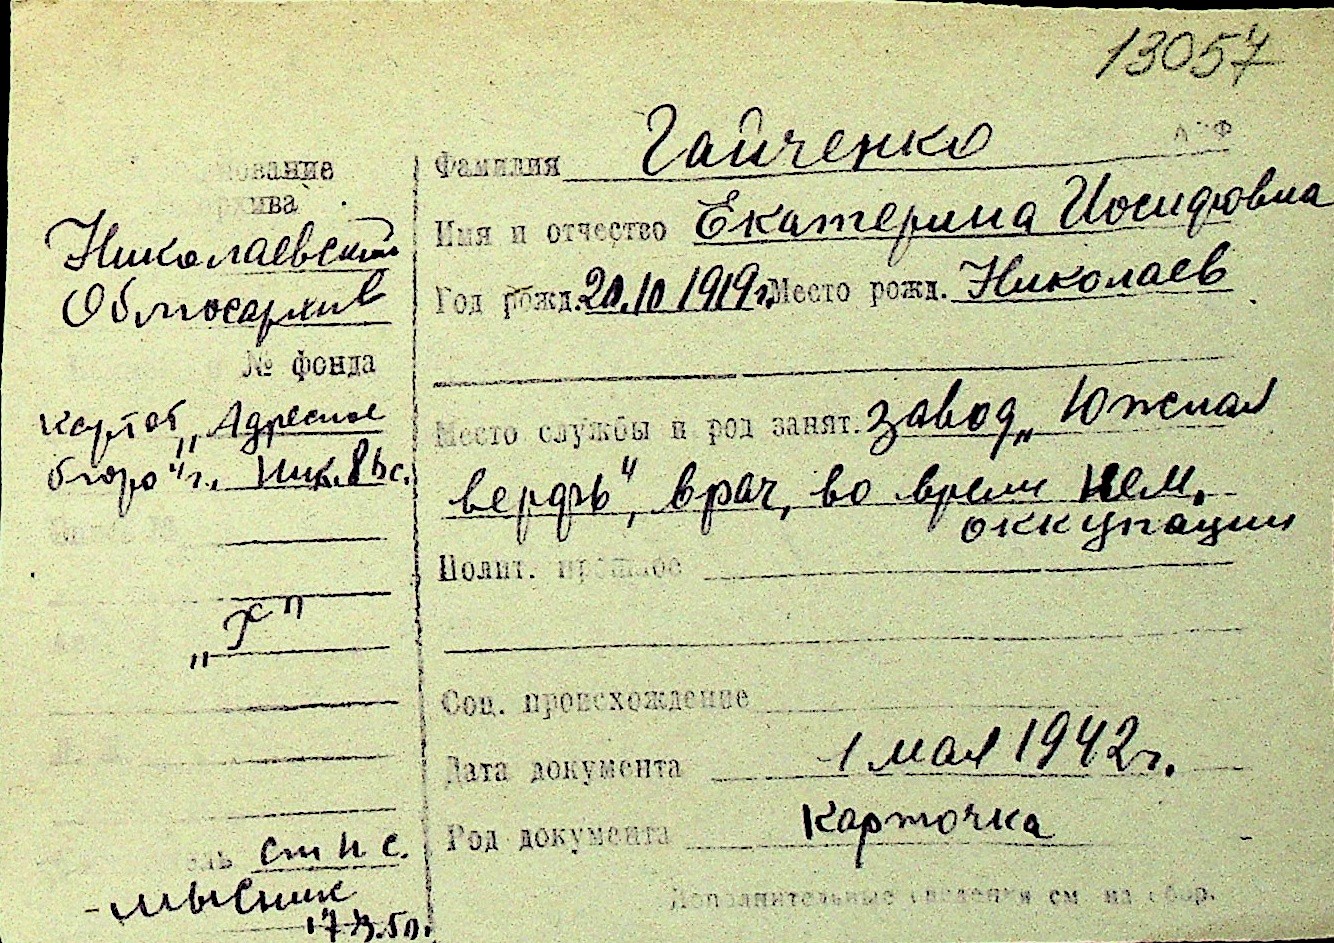 13057
Фамилия Гайченко
Имя и отчество Екатерина Иосифовна
Год рожд. 20.10 1919 г. Место рожд. Николаев
Место службы и род занят. завод „Южная
верфь", врач, во время нем.
оккупации
Полит. прошлое
Соц. происхождение
Дата документа 1 мая 1942 г.
Род документа Карточка
Дополнительные сведения см на обор.
нование
архива
Николаевский
Облгосархив
№ фонда
картот „Адресное
бюро" г. Ник.
„Г"
ль ст н с.
-Мысник